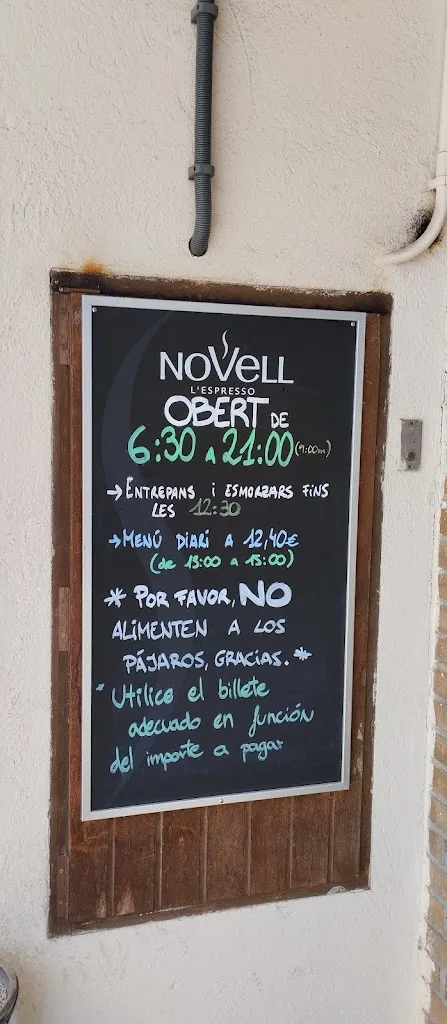 NOVELL
L'ESPRESSO
OBERT DE
6:30 A 21:00 (9:00m)
→ ENTREPANS i ESMORZARS FINS
LES 12:30
→ MENÚ DIARI A 12,40€
(de 13:00 a 15:00)
* POR FAVOR, NO
ALIMENTEN A LOS
PÁJAROS, GRACIAS. *
* Utilice el billete
adecuado en función
del importe a pagar